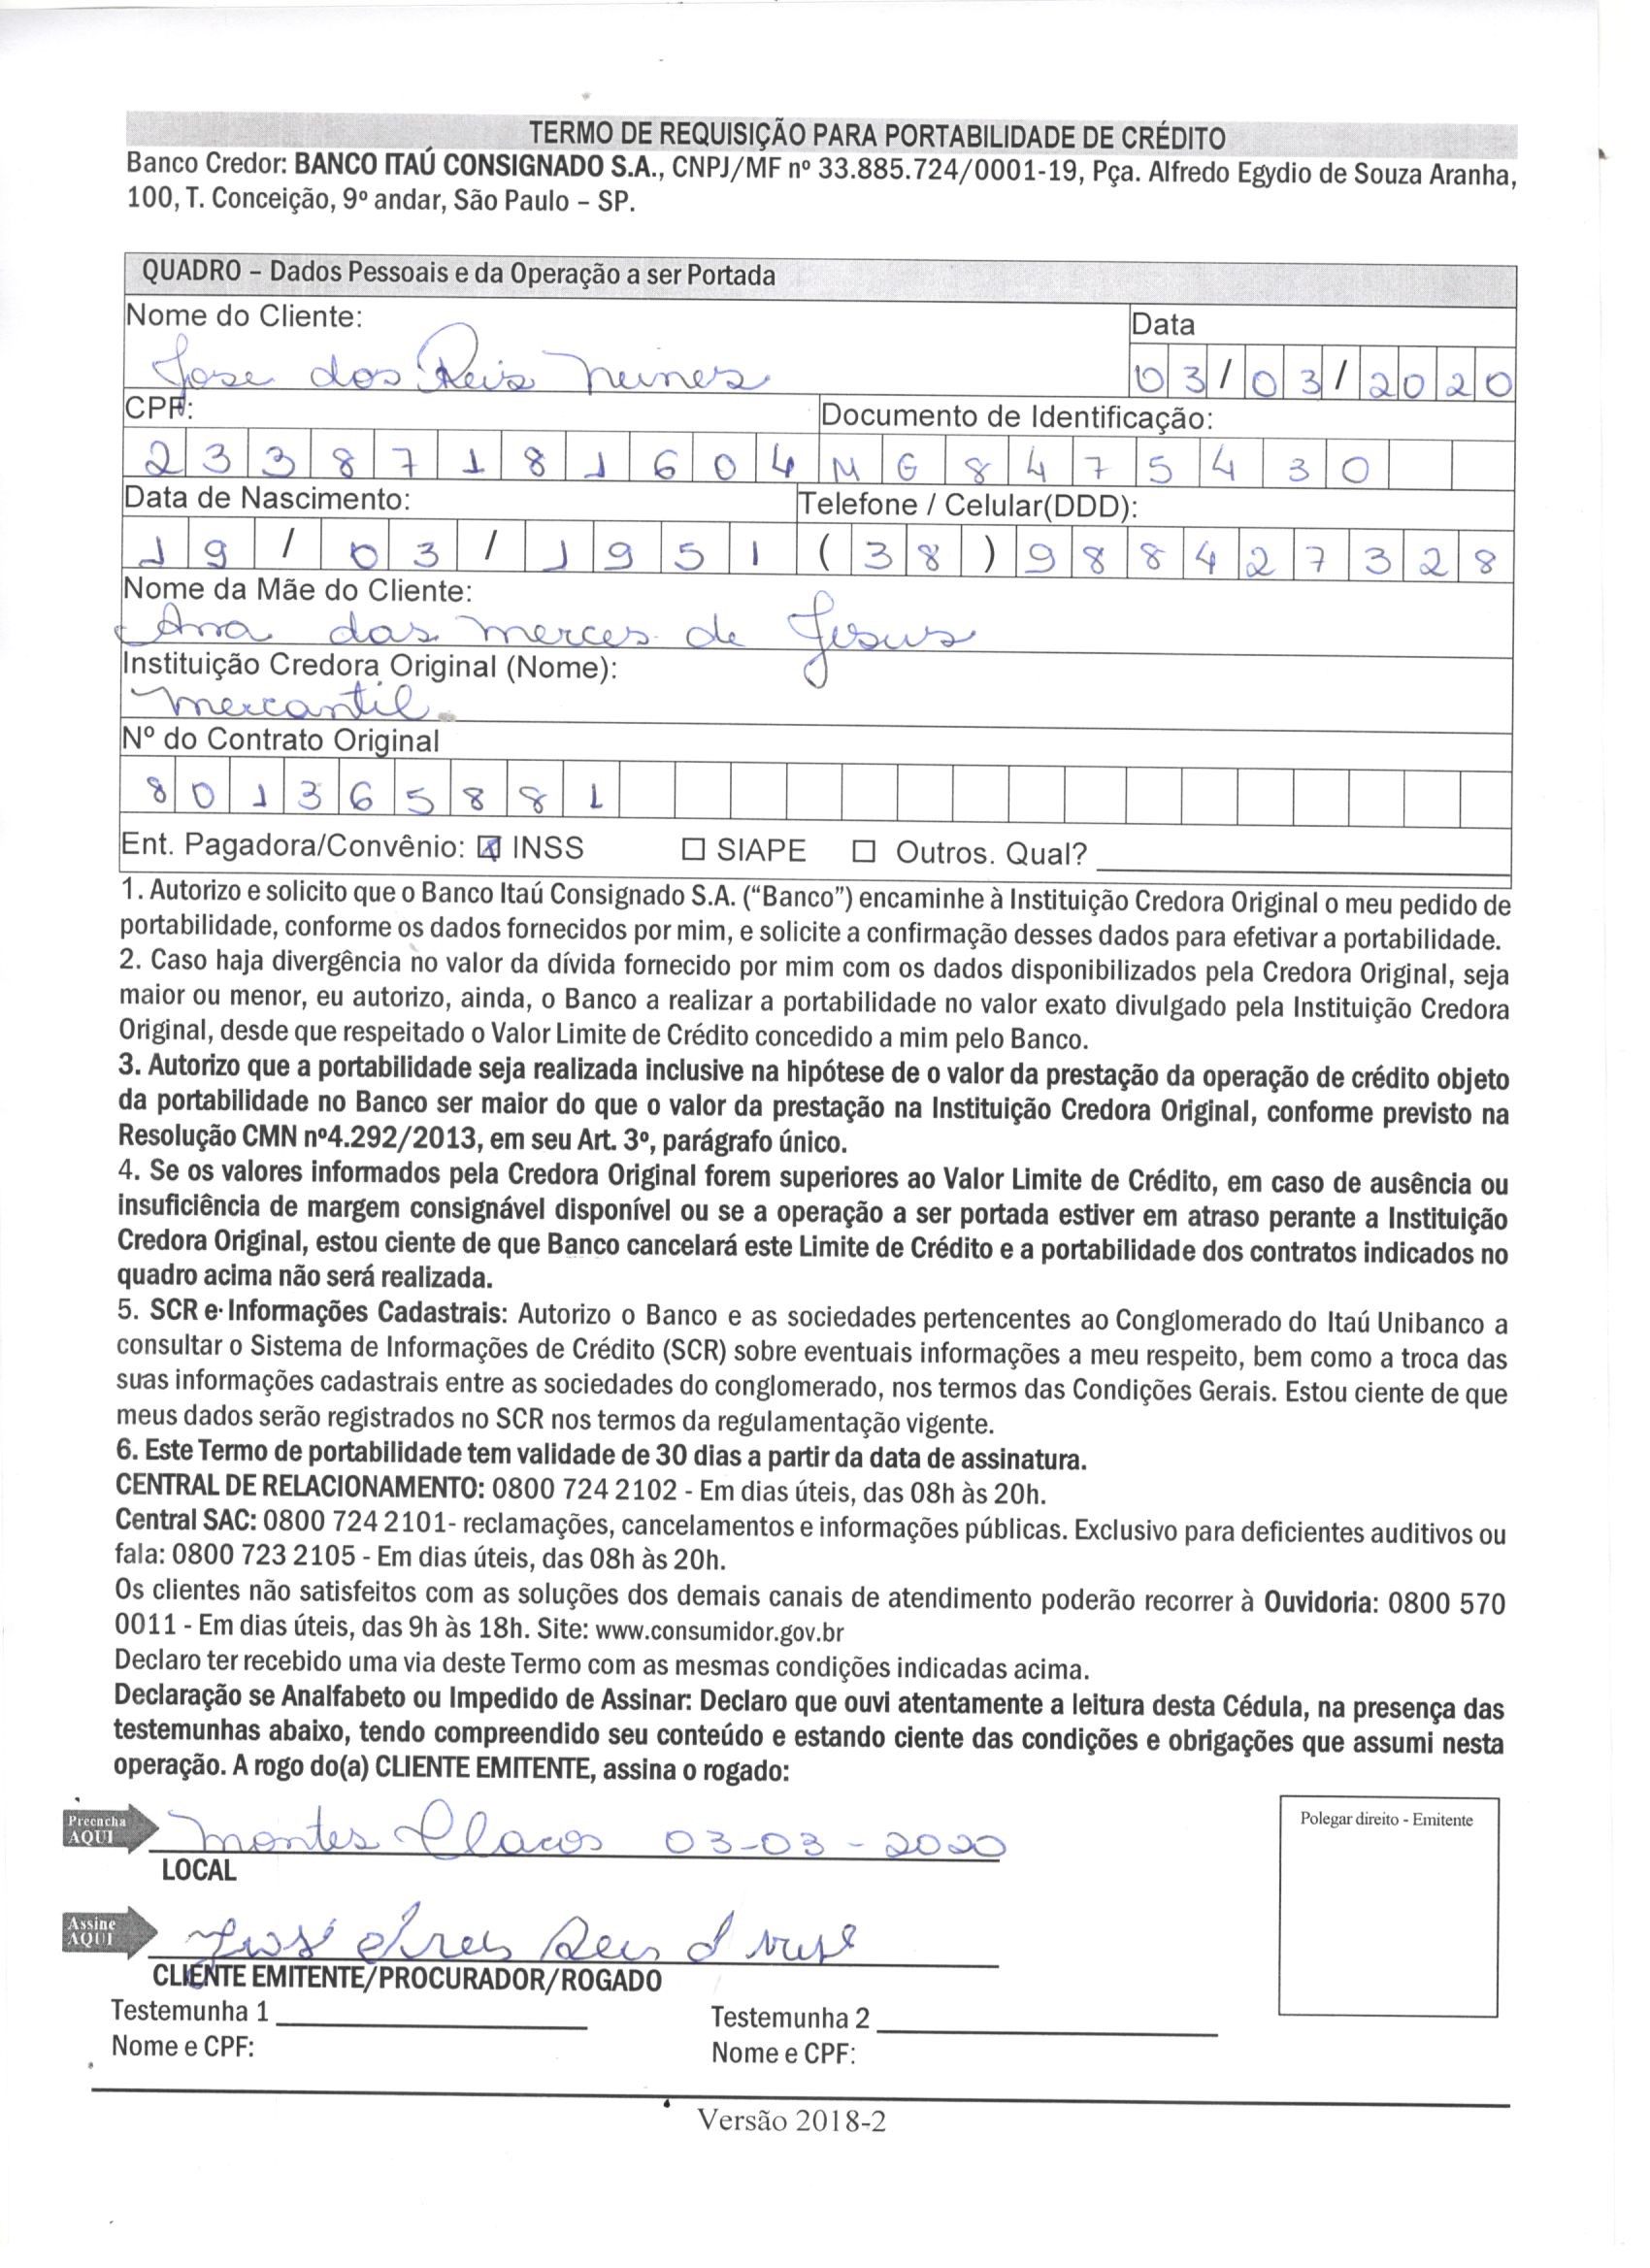 TERMO DE REQUISIÇÃO PARA PORTABILIDADE DE CRÉDITO
Banco Credor: BANCO ITAÚ CONSIGNADO S.A., CNPJ/MF nº 33.885.724/0001-19, Pça. Alfredo Egydio de Souza Aranha,
100, T. Conceição, 9º andar, São Paulo – SP.
QUADRO – Dados Pessoais e da Operação a ser Portada
Nome do Cliente: Data
Jose dos Reis Nunes 03/03/2020
CPF: Documento de Identificação:
23387181604 MG8475430
Data de Nascimento: Telefone / Celular(DDD):
19/03/1951 (38)988427328
Nome da Mãe do Cliente:
Ana das merces de Jesus
Instituição Credora Original (Nome):
mercantil
Nº do Contrato Original
801365881
Ent. Pagadora/Convênio: ☒ INSS ☐ SIAPE ☐ Outros. Qual?
1. Autorizo e solicito que o Banco Itaú Consignado S.A. (“Banco”) encaminhe à Instituição Credora Original o meu pedido de
portabilidade, conforme os dados fornecidos por mim, e solicite a confirmação desses dados para efetivar a portabilidade.
2. Caso haja divergência no valor da dívida fornecido por mim com os dados disponibilizados pela Credora Original, seja
maior ou menor, eu autorizo, ainda, o Banco a realizar a portabilidade no valor exato divulgado pela Instituição Credora
Original, desde que respeitado o Valor Limite de Crédito concedido a mim pelo Banco.
3. Autorizo que a portabilidade seja realizada inclusive na hipótese de o valor da prestação da operação de crédito objeto
da portabilidade no Banco ser maior do que o valor da prestação na Instituição Credora Original, conforme previsto na
Resolução CMN nº4.292/2013, em seu Art. 3º, parágrafo único.
4. Se os valores informados pela Credora Original forem superiores ao Valor Limite de Crédito, em caso de ausência ou
insuficiência de margem consignável disponível ou se a operação a ser portada estiver em atraso perante a Instituição
Credora Original, estou ciente de que Banco cancelará este Limite de Crédito e a portabilidade dos contratos indicados no
quadro acima não será realizada.
5. SCR e Informações Cadastrais: Autorizo o Banco e as sociedades pertencentes ao Conglomerado do Itaú Unibanco a
consultar o Sistema de Informações de Crédito (SCR) sobre eventuais informações a meu respeito, bem como a troca das
suas informações cadastrais entre as sociedades do conglomerado, nos termos das Condições Gerais. Estou ciente de que
meus dados serão registrados no SCR nos termos da regulamentação vigente.
6. Este Termo de portabilidade tem validade de 30 dias a partir da data de assinatura.
CENTRAL DE RELACIONAMENTO: 0800 724 2102 - Em dias úteis, das 08h às 20h.
Central SAC: 0800 724 2101- reclamações, cancelamentos e informações públicas. Exclusivo para deficientes auditivos ou
fala: 0800 723 2105 - Em dias úteis, das 08h às 20h.
Os clientes não satisfeitos com as soluções dos demais canais de atendimento poderão recorrer à Ouvidoria: 0800 570
0011 - Em dias úteis, das 9h às 18h. Site: www.consumidor.gov.br
Declaro ter recebido uma via deste Termo com as mesmas condições indicadas acima.
Declaração se Analfabeto ou Impedido de Assinar: Declaro que ouvi atentamente a leitura desta Cédula, na presença das
testemunhas abaixo, tendo compreendido seu conteúdo e estando ciente das condições e obrigações que assumi nesta
operação. A rogo do(a) CLIENTE EMITENTE, assina o rogado:
Polegar direito - Emitente
Preencha
AQUI
Montes Claros 03-03-2020
LOCAL
Assine
AQUI
José Reis
CLIENTE EMITENTE/PROCURADOR/ROGADO
Testemunha 1 Testemunha 2
Nome e CPF: Nome e CPF:
Versão 2018-2